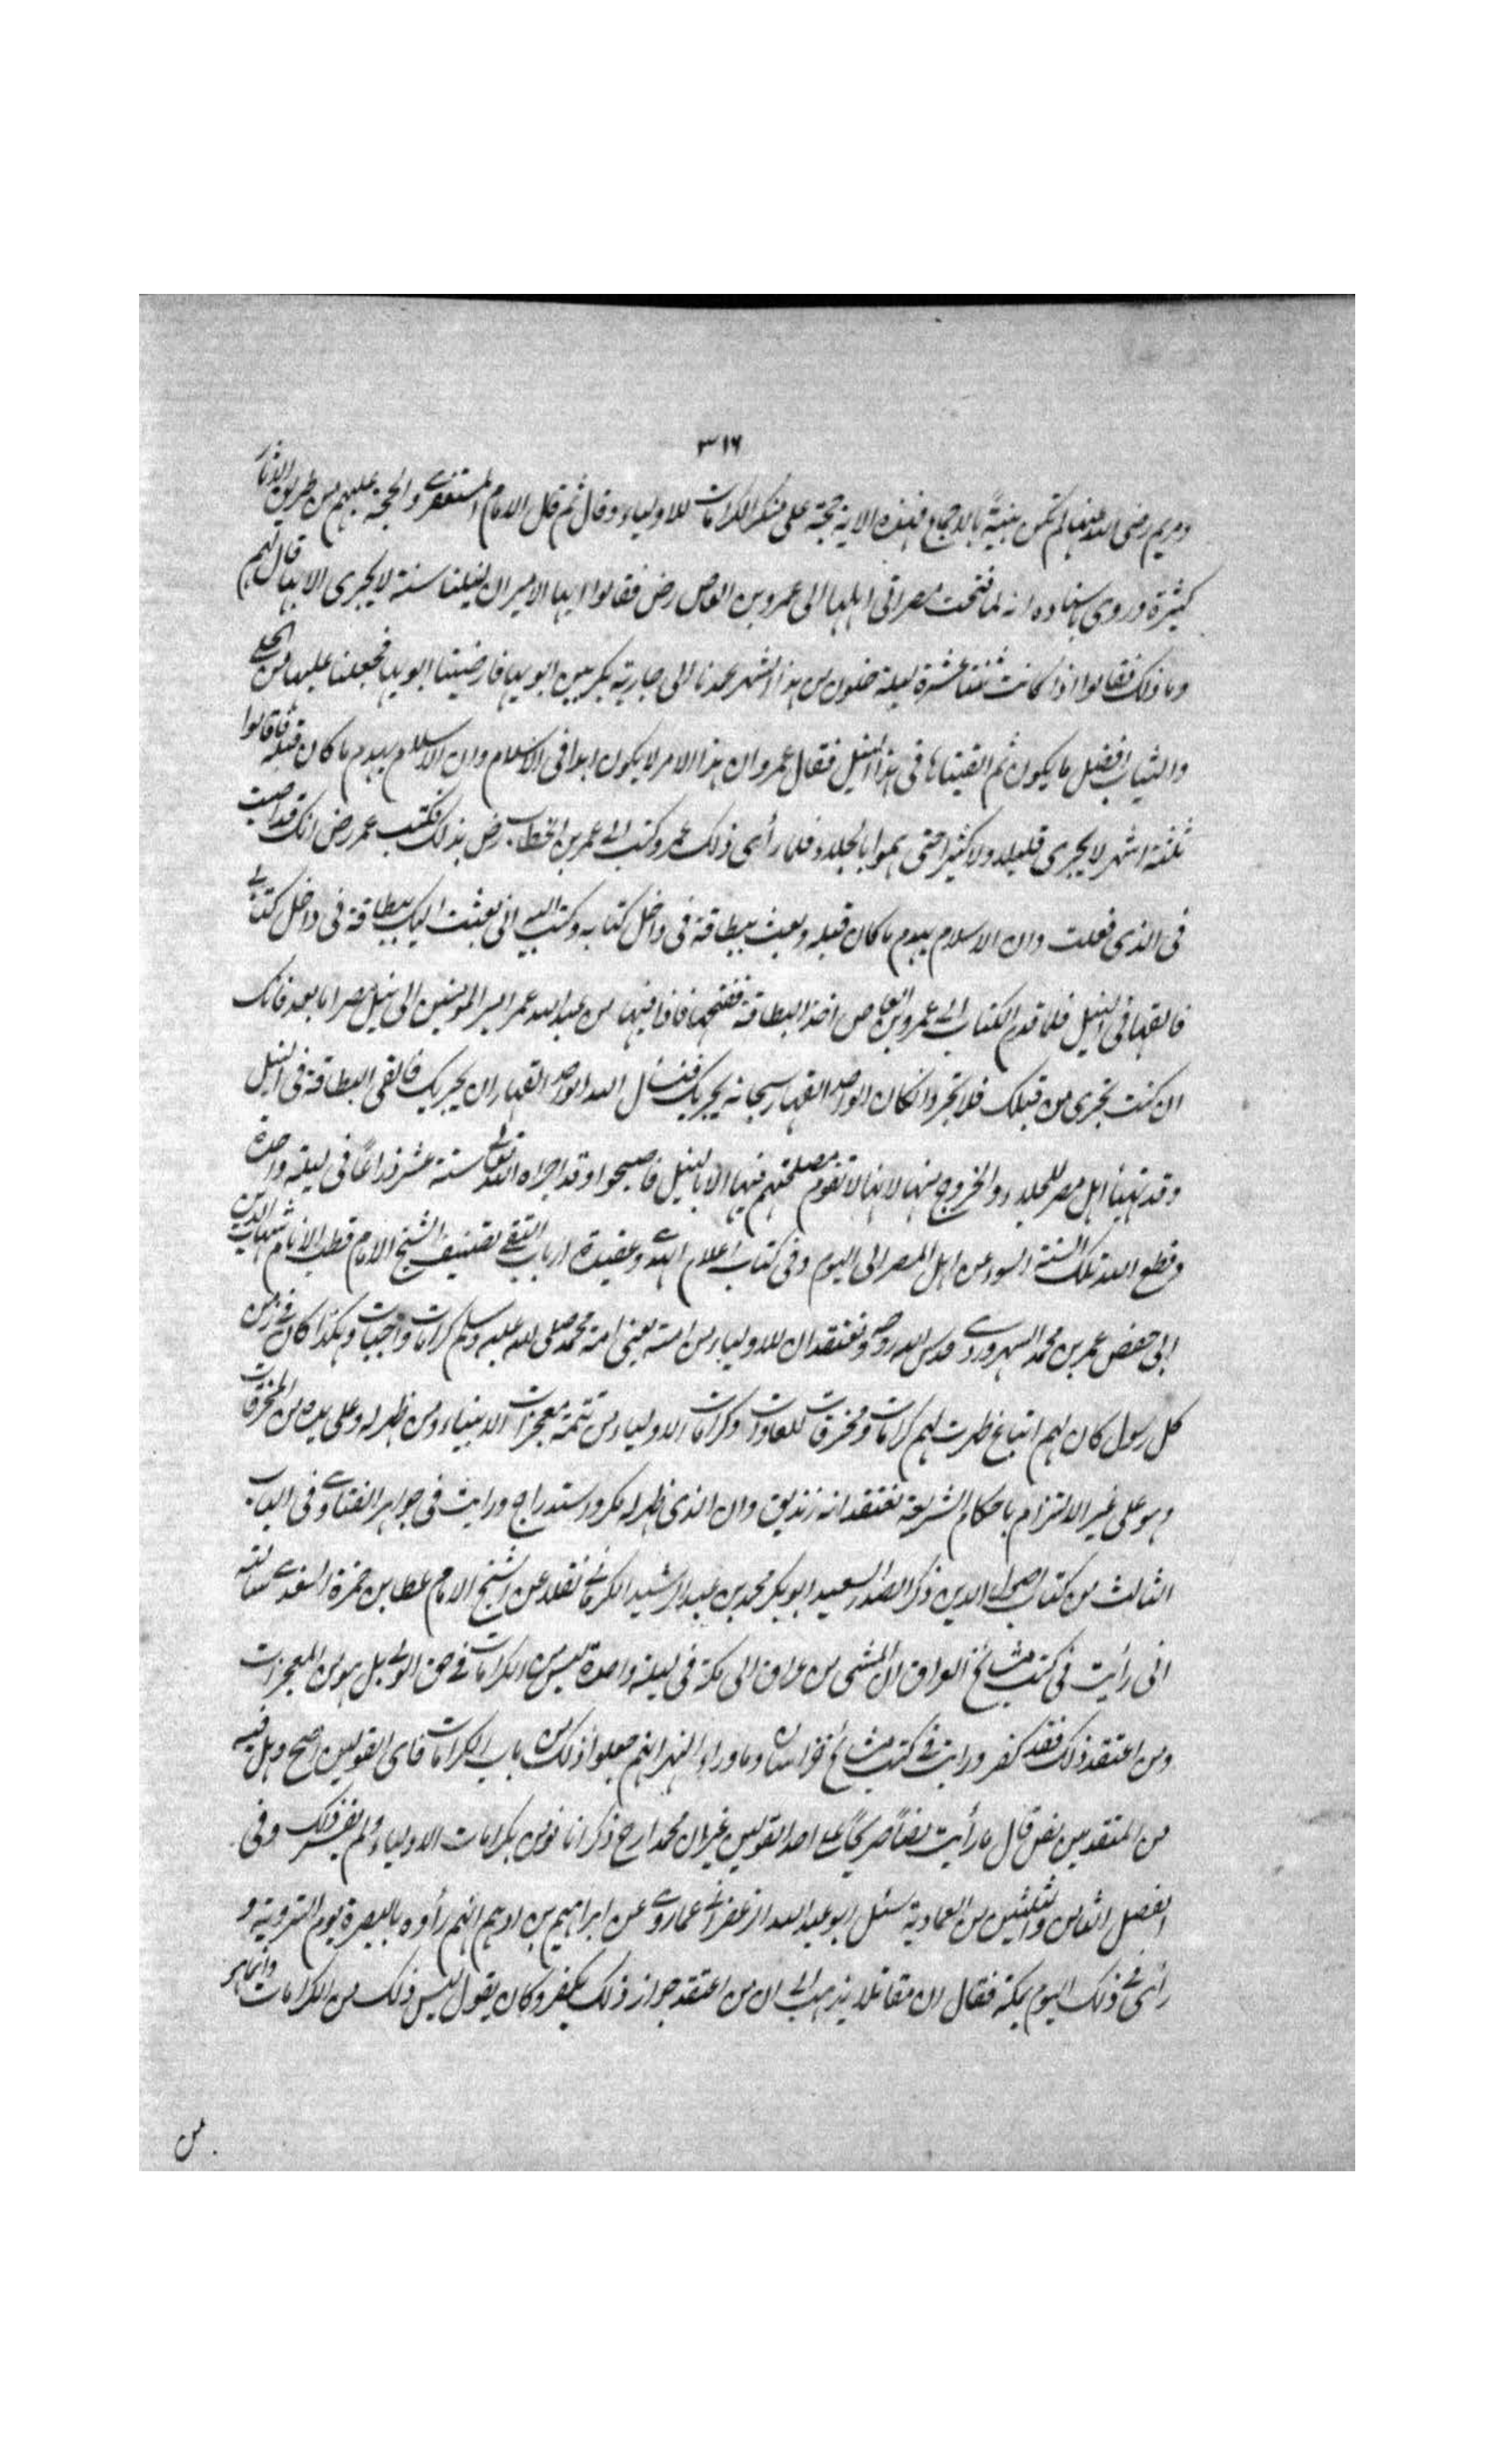 ٣١٦
ومريم رضى الله عنها لم تكن بنبية بالاجماع فهذه الاية حجة على منكر الكرامات للاولياء وقال ثم قال الامام المستغفرى والحجة عليهم من طريق الاثار
كثيرة وروى باسناده انه لما فتحت مصر اتى اهلها الى عمرو بن العاص رض فقالوا ايها الامير ان لنيلنا سنة لا يجرى الا بها قال لهم
وما ذلك فقالوا اذا كانت ثنتا عشرة ليلة خلون من هذا الشهر عمدنا الى جارية بكر بين ابويها فارضينا ابويها فجعلنا عليها من الحلى
والثياب افضل ما يكون ثم القيناها فى هذا النيل فقال عمرو ان هذا الامر لا يكون ابدا فى الاسلام وان الاسلام يهدم ما كان قبله فاقاموا
ثلثة اشهر لا يجرى قليلا ولا كثيرا حتى هموا بالجلاء فلما رأى ذلك عمرو كتب الى عمر بن الخطاب رض بذلك فكتب عمر رض انك قد اصبت
فى الذى فعلت وان الاسلام يهدم ما كان قبله وبعث ببطاقة فى داخل كتابه وكتب اليه انى بعثت اليك ببطاقة فى داخل كتابى
فالقها فى النيل فلما قدم الكتاب الى عمرو بن العاص اخذ البطاقة ففتحها فاذا فيها من عبد الله عمر امير المؤمنين الى نيل مصر اما بعد فانك
ان كنت تجرى من قبلك فلا تجر وان كان الواحد القهار سبحانه يجريك فنسأل الله الواحد القهار ان يجريك فالقى البطاقة فى النيل
وقد تهيأ اهل مصر للجلاء والخروج منها لانها لا تقوم مصلحتهم فيها الا بالنيل فاصبحوا وقد اجراه الله تعالى ستة عشر ذراعا فى ليلة واحدة
وقطع الله تلك السنة السوء عن اهل المصر الى اليوم وفى كتاب اعلام الهدى وعقيدة ارباب التقى تصنيف الشيخ الامام قطب الانام شهاب الدين
ابى حفص عمر بن محمد السهروردى قدس الله روحه ونعتقد ان للاولياء من امته يعنى امة محمد صلى الله عليه وسلم كرامات واجابات وهكذا كان فى زمن
كل رسول كان لهم اتباع ظهرت لهم كرامات ومخرقات للعادات وكرامات الاولياء من تتمة معجزات الانبياء ومن ظهر له وعلى يده من المخرقات
وهو على غير الالتزام باحكام الشريعة نعتقد انه زنديق وان الذى ظهر له مكر واستدراج ورايت فى جواهر الفتاوى فى الباب
الثالث من كتاب اصول الدين ذكر الصدر السعيد ابو بكر محمد بن عبد الرشيد الكرمانى نقلا عن الشيخ الامام عطا بن حمزة السغدى سألته
انى رأيت فى كتب مشائخ العراق ان المشى من عراق الى مكة فى ليلة واحدة ليس من الكرامات فى حق الولى بل هو من المعجزات
ومن اعتقد ذلك فقد كفر ورايت فى كتب مشائخ خراسان وما وراء النهر انهم جعلوا ذلك من باب الكرامات فاى القولين اصح وهل فيه
من المتقدمين نص قال ما رأيت نصاً صريحاً على احد القولين غير ان محمدا رح ذكر انا نؤمن بكرامات الاولياء ولم يفسر ذلك وفى
الفصل الثامن والثلثين من العمادية سئل ابو عبد الله الزعفرانى عما روى عن ابراهيم بن ادهم انهم رأوه بالبصرة يوم التروية و
رأى فى ذلك اليوم بمكة فقال ان مقاتلا يذهب الى ان من اعتقد جواز ذلك يكفر وكان يقول ليس ذلك من الكرامات وانما هو
من